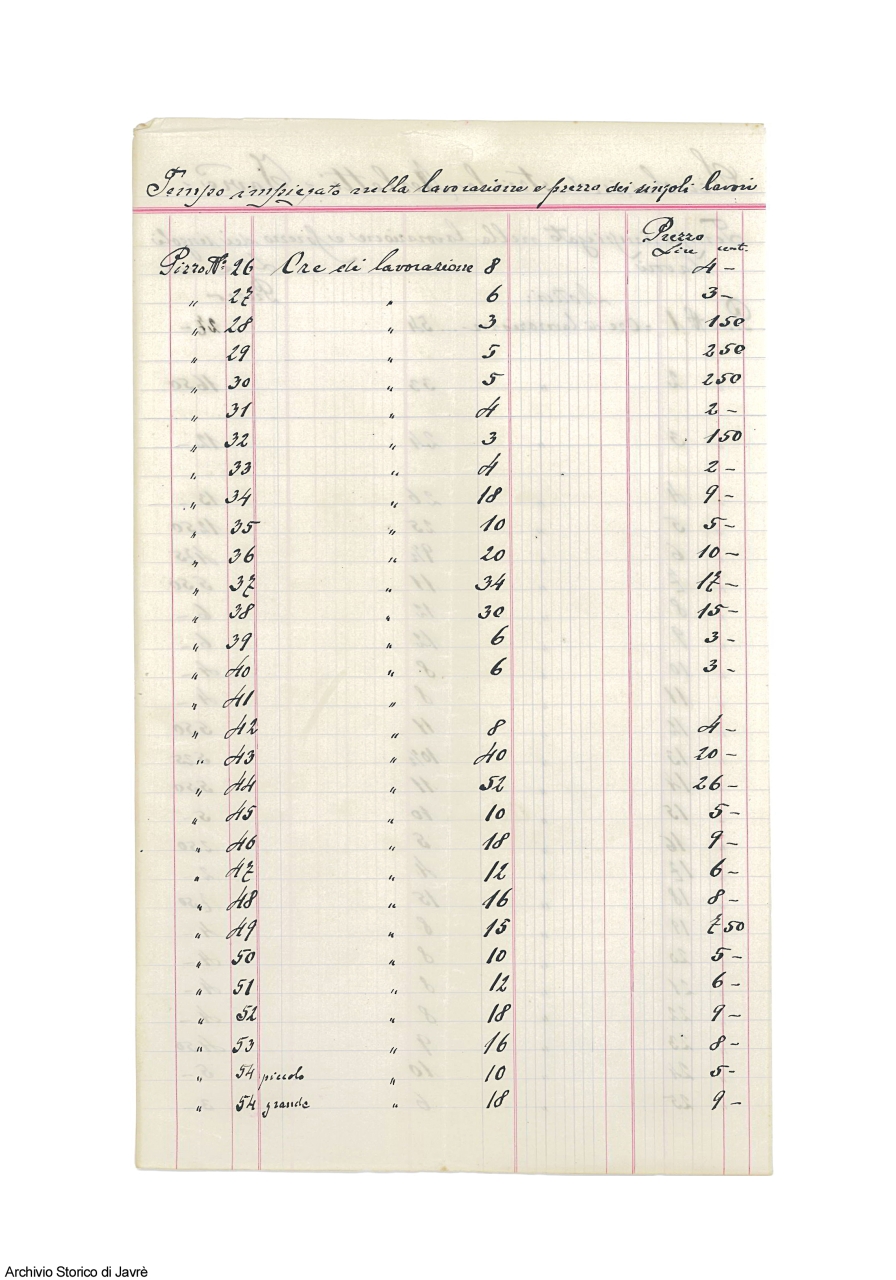 Tempo impiegato nella lavorazione e prezzo dei singoli lavori
Prezzo
Lire cent.
Pizzo Nº 26 Ore di lavorazione 8 4 –
" 27 " 6 3 –
" 28 " 3 1 50
" 29 " 5 2 50
" 30 " 5 2 50
" 31 " 4 2 –
" 32 " 3 1 50
" 33 " 4 2 –
" 34 " 18 9 –
" 35 " 10 5 –
" 36 " 20 10 –
" 37 " 34 17 –
" 38 " 30 15 –
" 39 " 6 3 –
" 40 " 6 3 –
" 41 "
" 42 " 8 4 –
" 43 " 40 20 –
" 44 " 52 26 –
" 45 " 10 5 –
" 46 " 18 9 –
" 47 " 12 6 –
" 48 " 16 8 –
" 49 " 15 7 50
" 50 " 10 5 –
" 51 " 12 6 –
" 52 " 18 9 –
" 53 " 16 8 –
" 54 piccolo " 10 5 –
" 54 grande " 18 9 –
Archivio Storico di Javrè